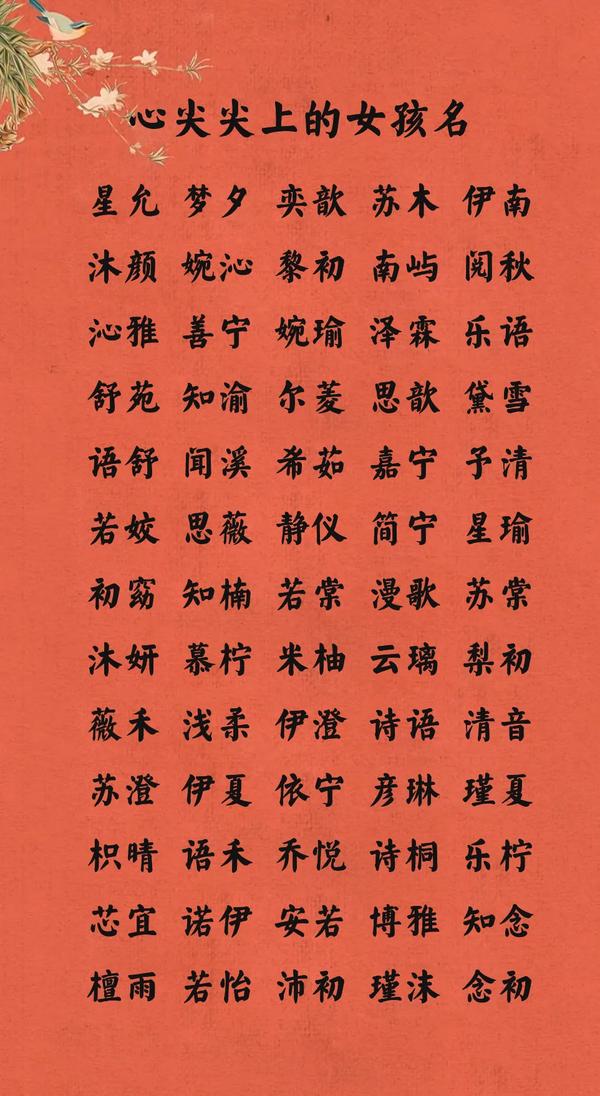 心尖尖上的女孩名
星允 梦夕 奕歆 苏木 伊南
沐颜 婉沁 黎初 南屿 阅秋
沁雅 善宁 婉瑜 泽霖 乐语
舒苑 知渝 尔菱 思歆 黛雪
语舒 闻溪 希茹 嘉宁 予清
若姣 思薇 静仪 简宁 星瑜
初窈 知楠 若棠 漫歌 苏棠
沐妍 慕柠 米柚 云璃 梨初
薇禾 浅柔 伊澄 诗语 清音
苏澄 伊夏 依宁 彦琳 瑾夏
枳晴 语禾 乔悦 诗桐 乐柠
芯宜 诺伊 安若 博雅 知念
檀雨 若怡 沛初 瑾沫 念初